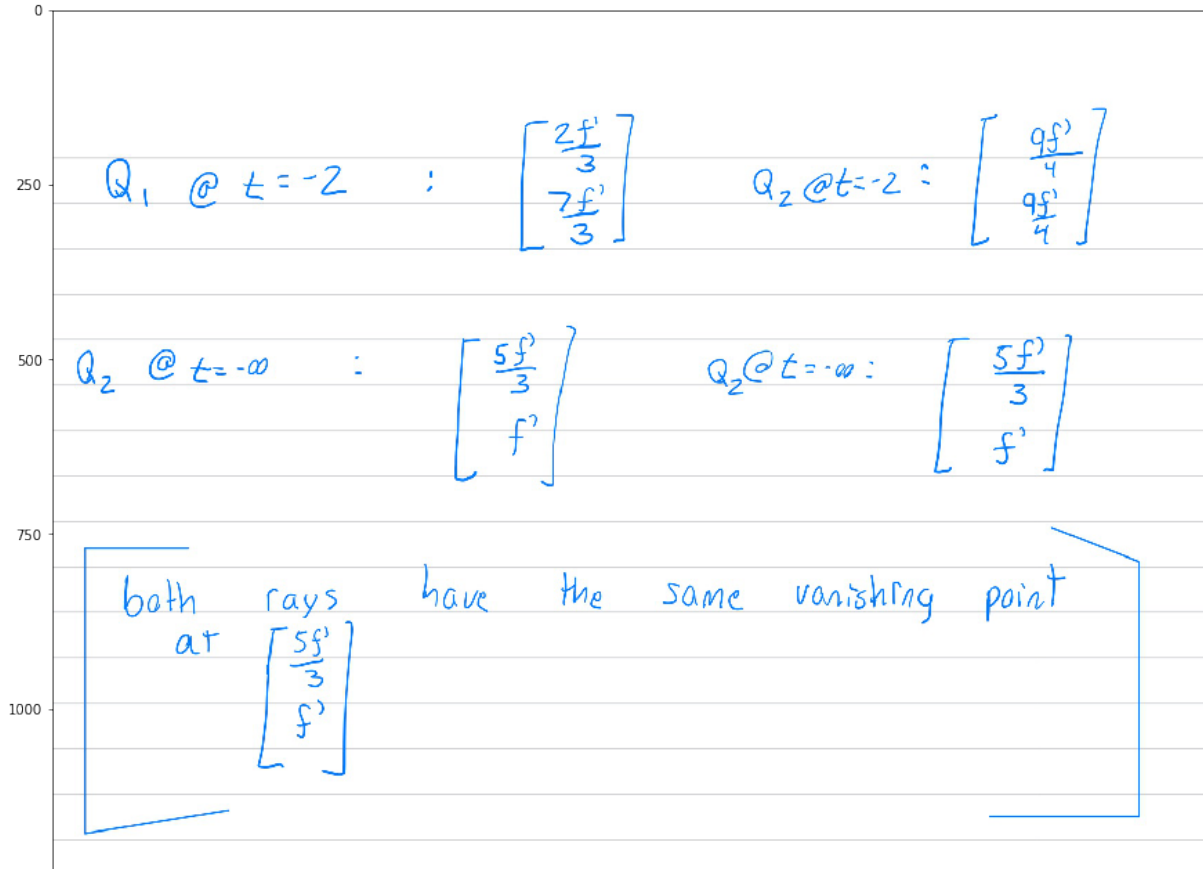 0
250
500
750
1000
Q₁ @ t=-2 : [2f'/3 7f'/3] Q₂ @ t=-2 : [9f'/4 9f'/4]
Q₂ @ t=-∞ : [5f'/3 f'] Q₂ @ t=-∞ : [5f'/3 f']
both rays have the same vanishing point
at [5f'/3 f']